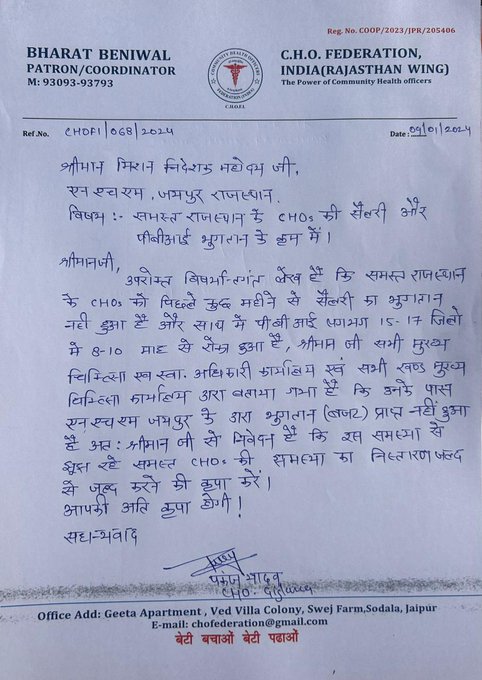 Reg. No. COOP/2023/JPR/205406
BHARAT BENIWAL
PATRON/COORDINATOR
M: 93093-93793
COMMUNITY HEALTH OFFICERS
FEDERATION (INDIA)
C.H.O.F.I.
C.H.O. FEDERATION,
INDIA(RAJASTHAN WING)
The Power of Community Health officers
Ref.No. CHOFI/068/2024
Date: 09/01/2024
श्रीमान मिशन निदेशक महोदय जी,
एन एच एम, जयपुर राजस्थान.
विषय :- समस्त राजस्थान के CHOs की सैलरी और
पीबीआई भुगतान के क्रम में।
श्रीमानजी,
उपरोक्त विषयांतर्गत लेख है कि समस्त राजस्थान
के CHOs को पिछले कुछ महीने से सैलरी का भुगतान
नहीं हुआ है और साथ में पीबीआई लगभग 15-17 जिलो
में 8-10 माह से रोका हुआ है, श्रीमान जी सभी मुख्य
चिकित्सा एवं स्वा. अधिकारी कार्यालय एवं सभी खण्ड मुख्य
चिकित्सा कार्यालय द्वारा बताया गया है कि उनके पास
एन एच एम जयपुर के द्वारा भुगतान (बजट) प्राप्त नहीं हुआ
है अत: श्रीमान जी से निवेदन है कि इस समस्या से
जूझ रहे समस्त CHOs की समस्या का निस्तारण जल्द
से जल्द करने की कृपा करें।
आपकी अति कृपा होगी!
सधन्यवाद
पंकज यादव
CHO.
Office Add: Geeta Apartment , Ved Villa Colony, Swej Farm,Sodala, Jaipur
E-mail: chofederation@gmail.com
बेटी बचाओं बेटी पढाओं